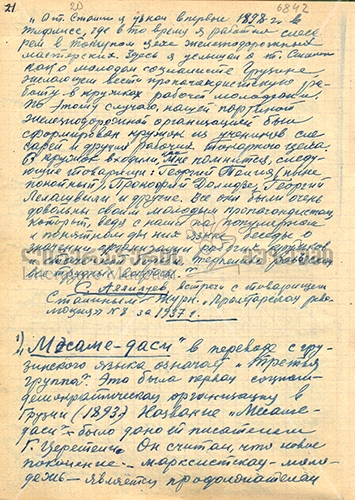 21
20
6842
"О т. Сталине я узнал впервые 1898 г. в
Тифлисе, где в то время я работал слеса
рем в токарном цехе железнодорожных
мастерских. Здесь я услышал о т. Сталине
как о молодом социалисте грузине
желающем вести пропагандистскую ра-
боту в кружках рабочей молодежи.
По этому случаю, нашей партийной
железнодорожной организацией был
сформирован кружок из учеников сле
сарей и других рабочих токарного цеха.
В кружок входили, мне помнится, следу-
ющие товарищи: Георгий (ныне
покойный), Прокофий Долидзе, Георгий
Лелашвили и другие. Все они были очень
довольны своим молодым пропагандистом,
который, ведя с нами на популярном
и понятном для них языке беседы о
значении организации рабочих кружков
все трудные вопросы."
С. Аллилуев, встречи с товарищем
Сталиным. Журн. "Пролетарская рево-
люция" № 8 за 1937 г.
1) "Месаме-даси" в переводе с гру-
зинского языка означал "третья
группа". Это была первая социал-
демократическая организация в
Грузии (1893г.) Название "Месаме-
даси" было дано ей писателем
Г. Церетели. Он считал, что новое
поколение - марксистская моло-
дежь - является продолжателем